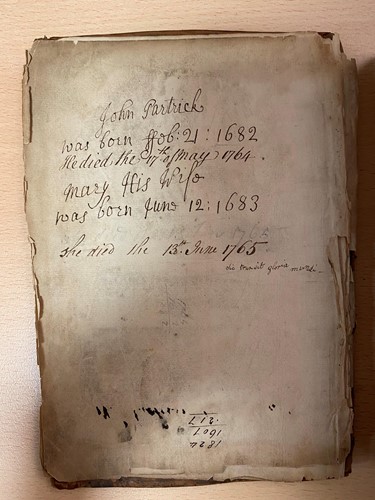 John Partrick
was born ffeb: 21: 1682
He died the 17th of may 1764.
Mary His Wife
was born June 12: 1683
she died the 13th June 1765
sic transit gloria mundi.
1824
1607
217